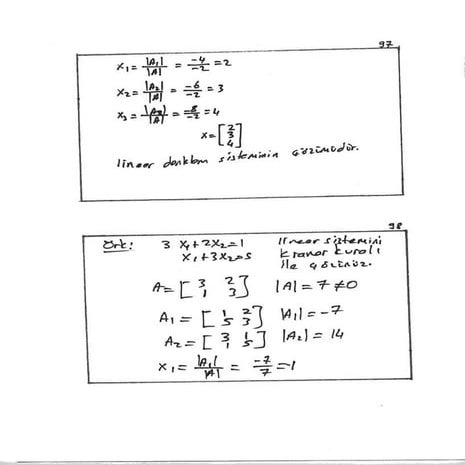 97
x₁ = |A₁|/|A| = -4/-2 = 2
x₂ = |A₂|/|A| = -6/-2 = 3
x₃ = |A₃|/|A| = -8/-2 = 4
x = [2 3 4]
lineer denklem sisteminin çözümüdür.
98
Örk: 3x₁+2x₂=1 lineer sistemini
x₁+3x₂=5 kramer kuralı
ile çözünüz.
A = [3 2
1 3] |A| = 7 ≠0
A₁ = [1 2
5 3] |A₁| = -7
A₂ = [3 1
1 5] |A₂| = 14
x₁ = |A₁|/|A| = -7/7 = -1